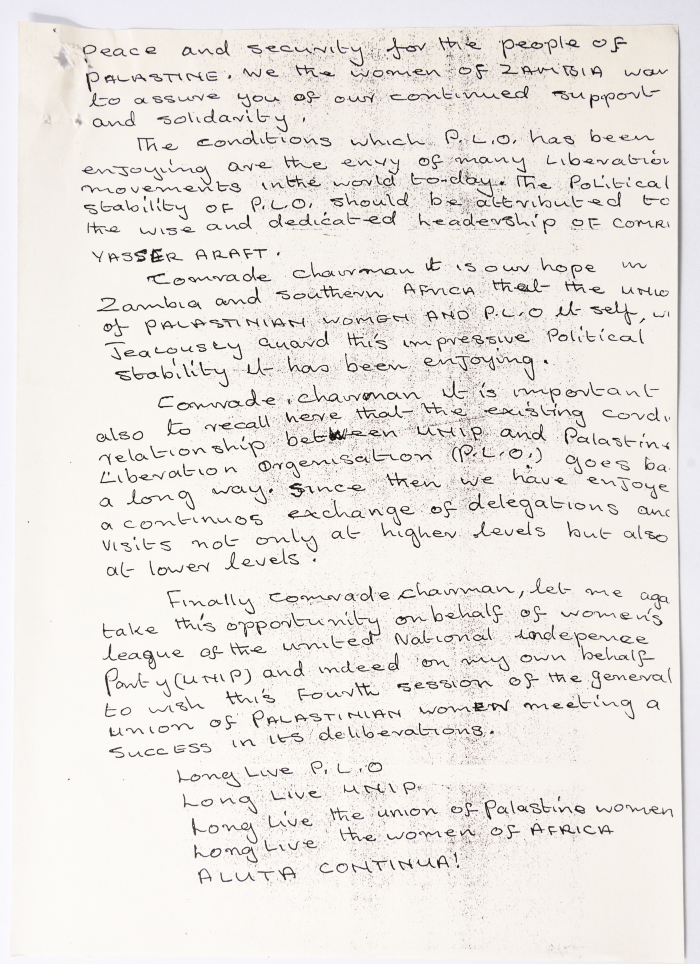 Peace and security for the people of
PALASTINE. We the women of ZAMBIA wan
to assure you of our continued support
and solidarity.
The conditions which P.L.O. has been
enjoying are the envy of many Liberation
movements inthe world to-day. The Political
stability of P.L.O. should be attributed to
the wise and dedicated leadership OF COMR
YASSER ARAFT.
Comrade chairman it is our hope in
Zambia and southern AFRICA that the UNIO
of PALASTINIAN WOMEN AND P.L.O it self, wi
Jealously guard this impressive Political
stability it has been enjoying.
Comrade, chairman it is important
also to recall here that the existing cordi
relationship between UNIP and Palastine
Liberation Orgenisation (P.L.O.) goes ba
a long way. Since then we have enjoye
a continuos exchange of delegations and
visits not only at higher levels but also
at lower levels.
Finally comrade chairman, let me aga
take this opportunity on behalf of women's
league of the united National indepence
Party (UNIP) and indeed on my own behalf
to wish this Fourth session of the general
union of PALASTINIAN women meeting a
SUCCESS in its deliberations.
Long Live P.L.O
Long Live UNIP.
Long Live the union of Palastine women
Long Live the women of AFRICA
ALUTA CONTINUA!